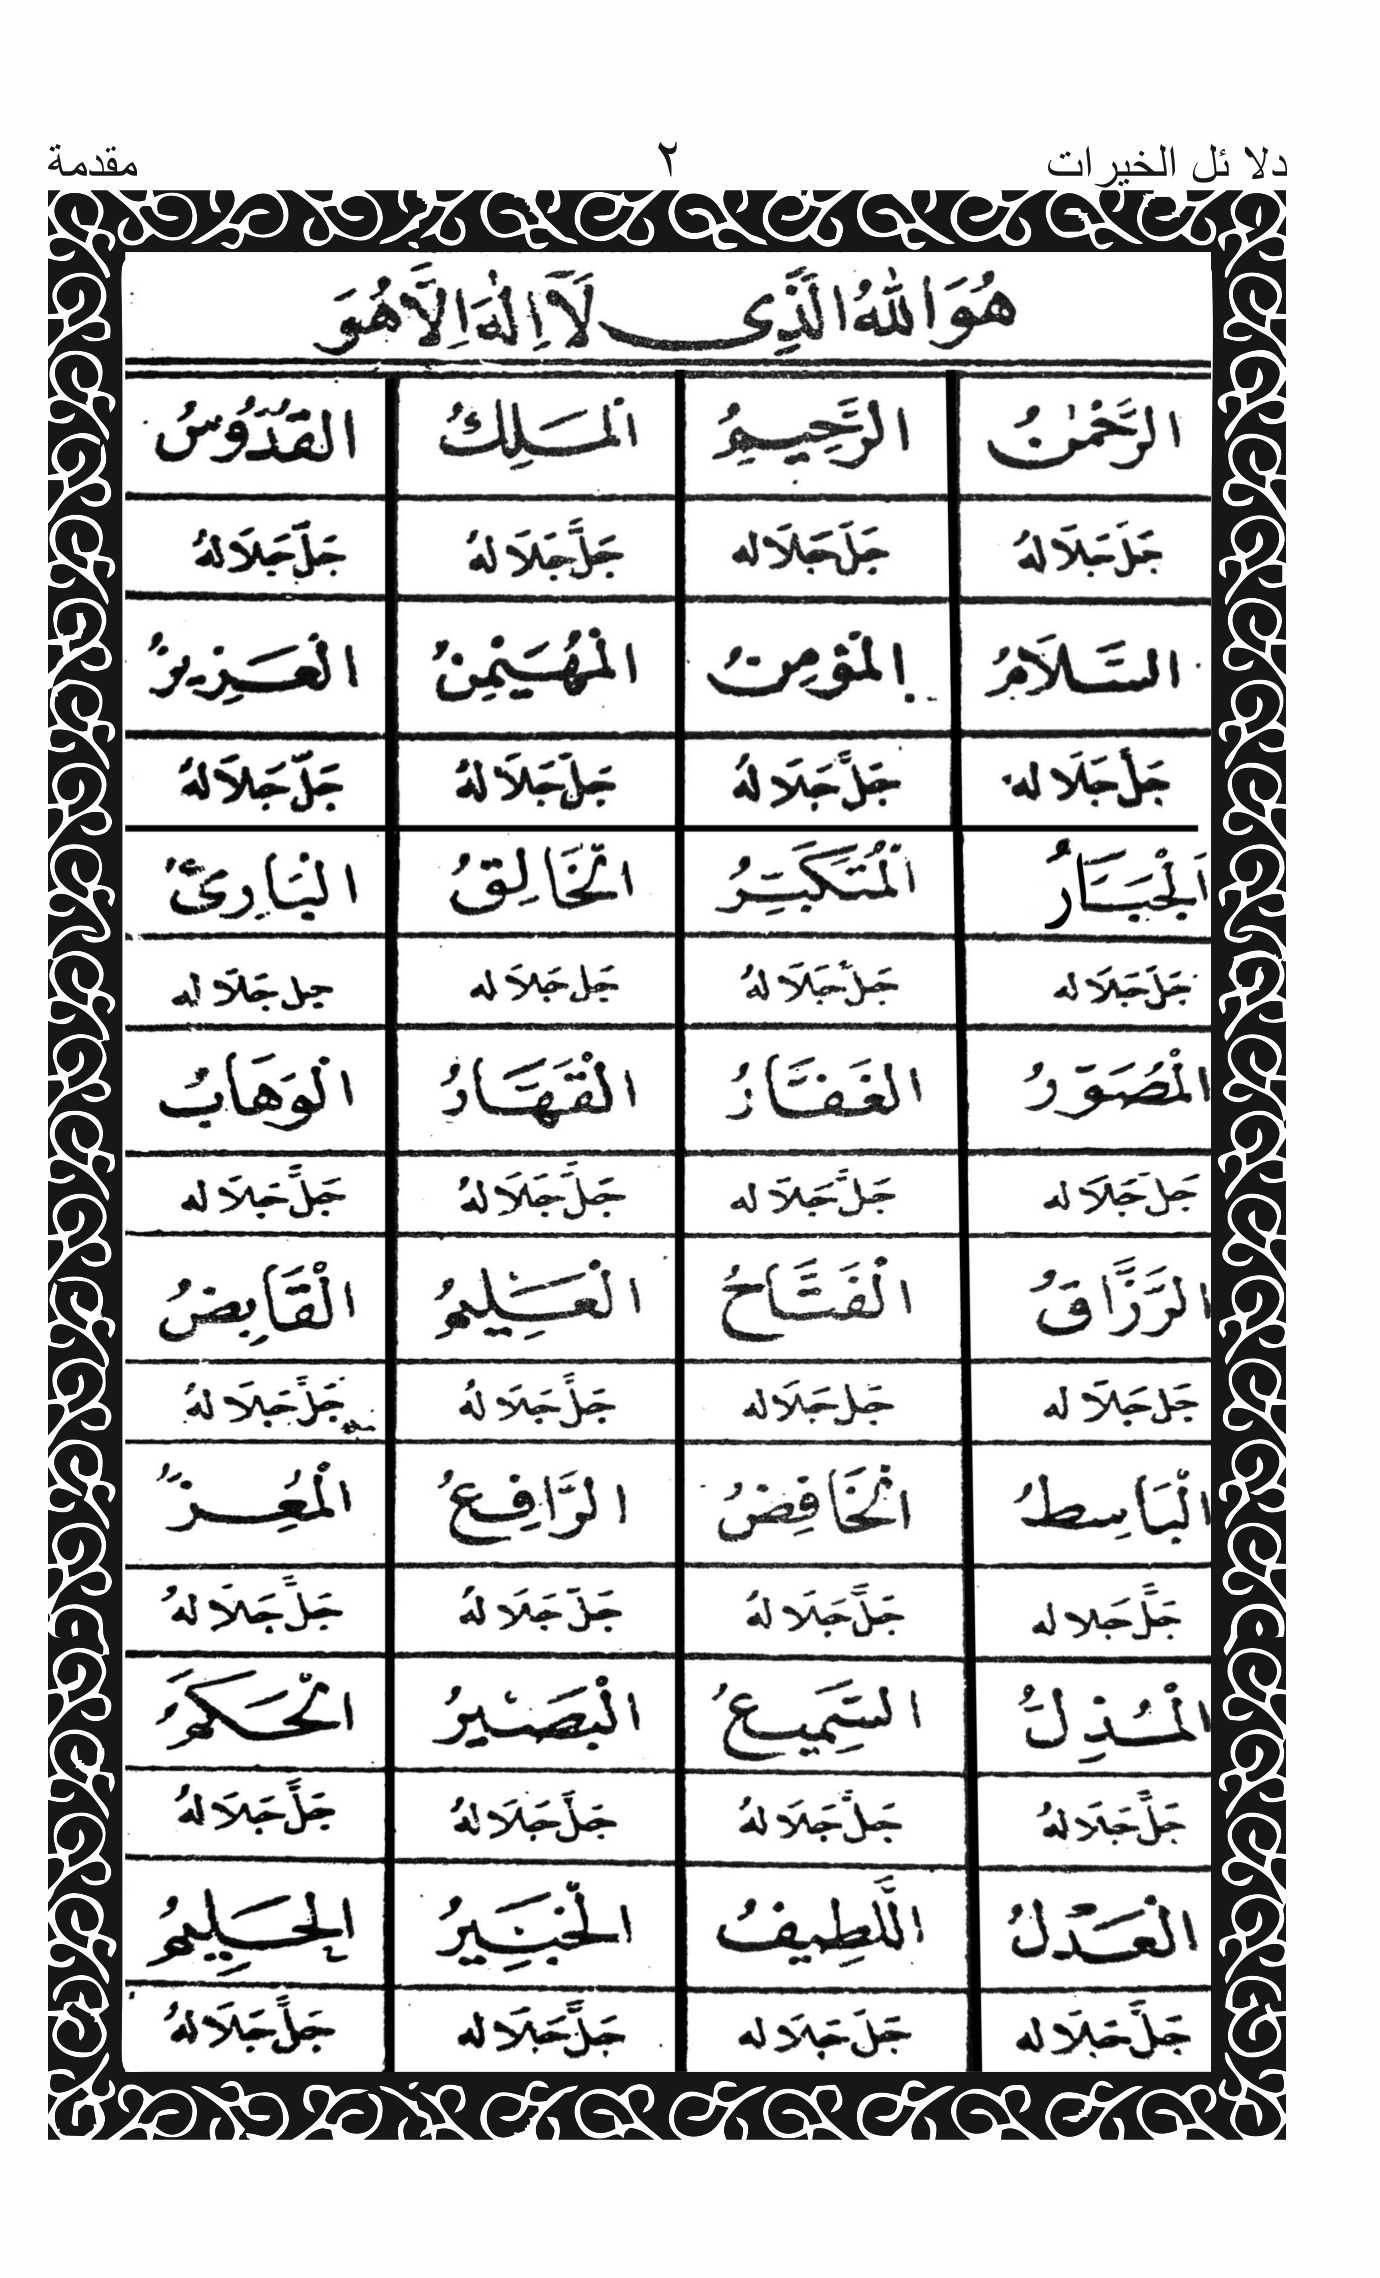 دلا ئل الخيرات ٢ مقدمة
هُوَاللهُ الَّذِی لَآ اِلٰهَ اِلَّا هُوَ
الرَّحْمٰنُ الرَّحِيمُ الْمَلِكُ الْقُدُّوْسُ
جَلَ جَلَالهُ جَلَ جَلَاله جَلَّ جَلَالهُ جَلّ جَلَالهُ
السَّلَامُ الْمُؤْمِنُ الْمُهَيْمِنُ الْعَزِيزُ
جَلْ جَلَاله جَلَّ جَلَالهُ جَلَ جَلَالهُ جَلّ جَلَالهُ
اَلْجَبَّارُ الْمُتَكَبِّرُ الْخَالِقُ الْبَارِیُٔ
جَلَ جَلَاله جَلَّ جَلَالهُ جَل جَلَاله جل جَلَاله
الْمُصَوِّرُ الْغَفَّارُ الْقَهَّارُ الْوَهَّابُ
جَل جَلَاله جَلَّ جَلَاله جَلَّ جَلَالهُ جَلَّ جَلَاله
الرَّزَّاقُ الْفَتَّاحُ الْعَلِيمُ الْقَابِضُ
جَل جَلَاله جَل جَلَاله جَلَّ جَلَالهُ جَلَّ جَلَالهُ
الْبَاسِطُ الْخَافِضُ الرَّافِعُ الْمُعِزُّ
جَلَّ جَلَاله جَلَّ جَلَالهُ جَلّ جَلَالهُ جَلَّ جَلَالهُ
الْمُذِلُّ السَّمِيعُ الْبَصِيرُ الْحَكَمُ
جَلَّ جَلَالهُ جَلَّ جَلَالهُ جَلَّ جَلَالهُ جَلَّ جَلَالهُ
الْعَدْلُ اللَّطِيفُ الْخَبِيرُ الْحَلِيمُ
جَلَّ جَلَاله جَلَ جَلَاله جَلَّ جَلَاله جَلَّ جَلَالهُ